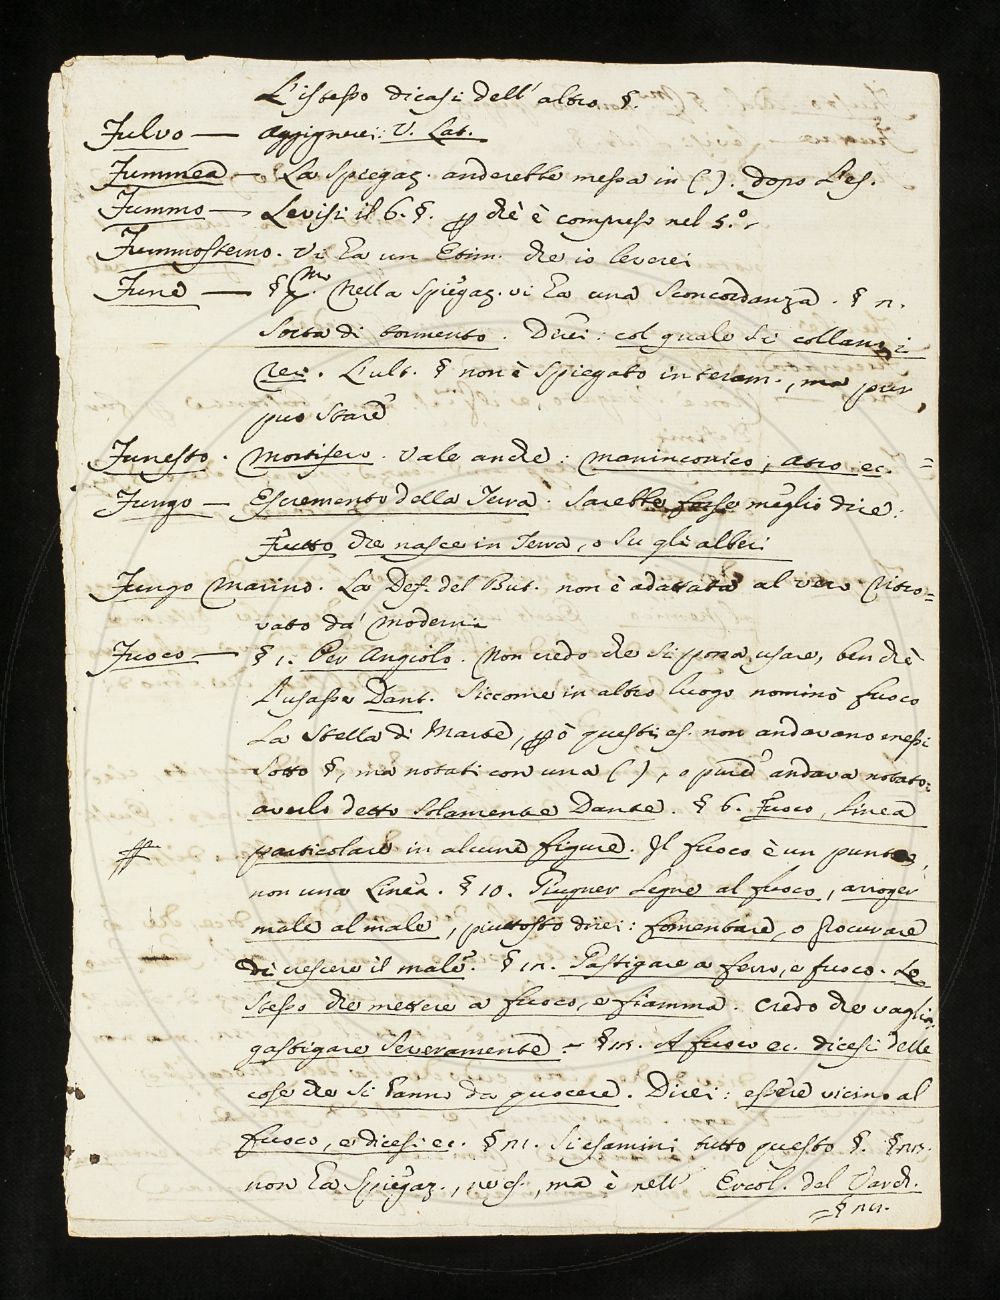 L'istesso dicasi dell'altro §.
Fulvo — Aggignerei: V. Lat.
Fummea — La Spiegaz. anderebbe messa in ( ). dopo L'es.
Fummo — Levisi il 6. §. pchè è compreso nel 5.º
Fummosterno. Vi ha un Etim. che io leverei
Fune — §. Nella Spiegaz. vi ha una Sconcordanza. § 11.
Sorta di tormento. Direi: col quale si collano i
Rei. L'ult. § non è Spiegato interam., ma pur
può stare
Funesto. Mortifero. Vale anche: maninconico, atro ec.
Fungo — Escremento della Terra. Sarebbe forse meglio dire:
Frutto che nasce in Terra, o su gli alberi
Fungo Marino. La Def. del But. non è adattata al vero Ritro=
vato da' Moderni
Fuoco — § 1. Per Angiolo. Non credo che si possa usare, benchè
L'usasse Dant. Siccome in altro luogo nominò fuoco
La Stella di Marte, pò questi es. non andavano messi
Sotto §, ma notati con una ( ), o pure andava notato
averlo detto Solamente Dante. § 6. Fuoco, Linea
particolare in alcune figure. Il fuoco è un punto,
non una Linea. § 10. Giugner Legne al fuoco, arroger
male al male, piuttosto direi: fomentare, o procurare
di crescere il male. § 12. Gastigare a ferro, e fuoco. Lo
Stesso che mettere a fuoco, e fiamma. Credo che vaglia
gastigare Severamente. = § A fuoco ec. dicesi delle
cose che si hanno da quocere. Direi: essere vicino al
fuoco, e dicesi ec. § Si esamini tutto questo §. §
non ha Spiegaz., nè es., ma è nell' Ercol. del Varch.
= §